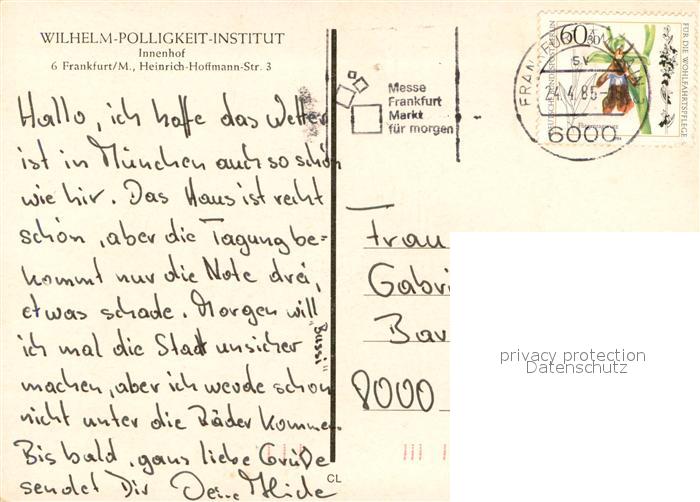 WILHELM-POLLIGKEIT-INSTITUT
Innenhof
6 Frankfurt/M., Heinrich-Hoffmann-Str. 3
Hallo, ich hoffe das Wetter
ist in München auch so schön
wie hir. Das Haus ist recht
schön, aber die Tagung be-
kommt nur die Note drei,
etwas schade. Morgen will
ich mal die Stadt unsicher
machen, aber ich werde schon
nicht unter die Räder kommen
Bis bald, ganz liebe Grüße
sendet Dir Deine
"Bussi"
CL
Messe
Frankfurt
Markt
für morgen
FRANKFURT AM MAIN
sv
24.4.85-
6000
60+30
DEUTSCHE BUNDESPOST BERLIN
FÜR DIE WOHLFAHRTSPFLEGE
Frau
Gabri
Bar
8000
privacy protection
Datenschutz